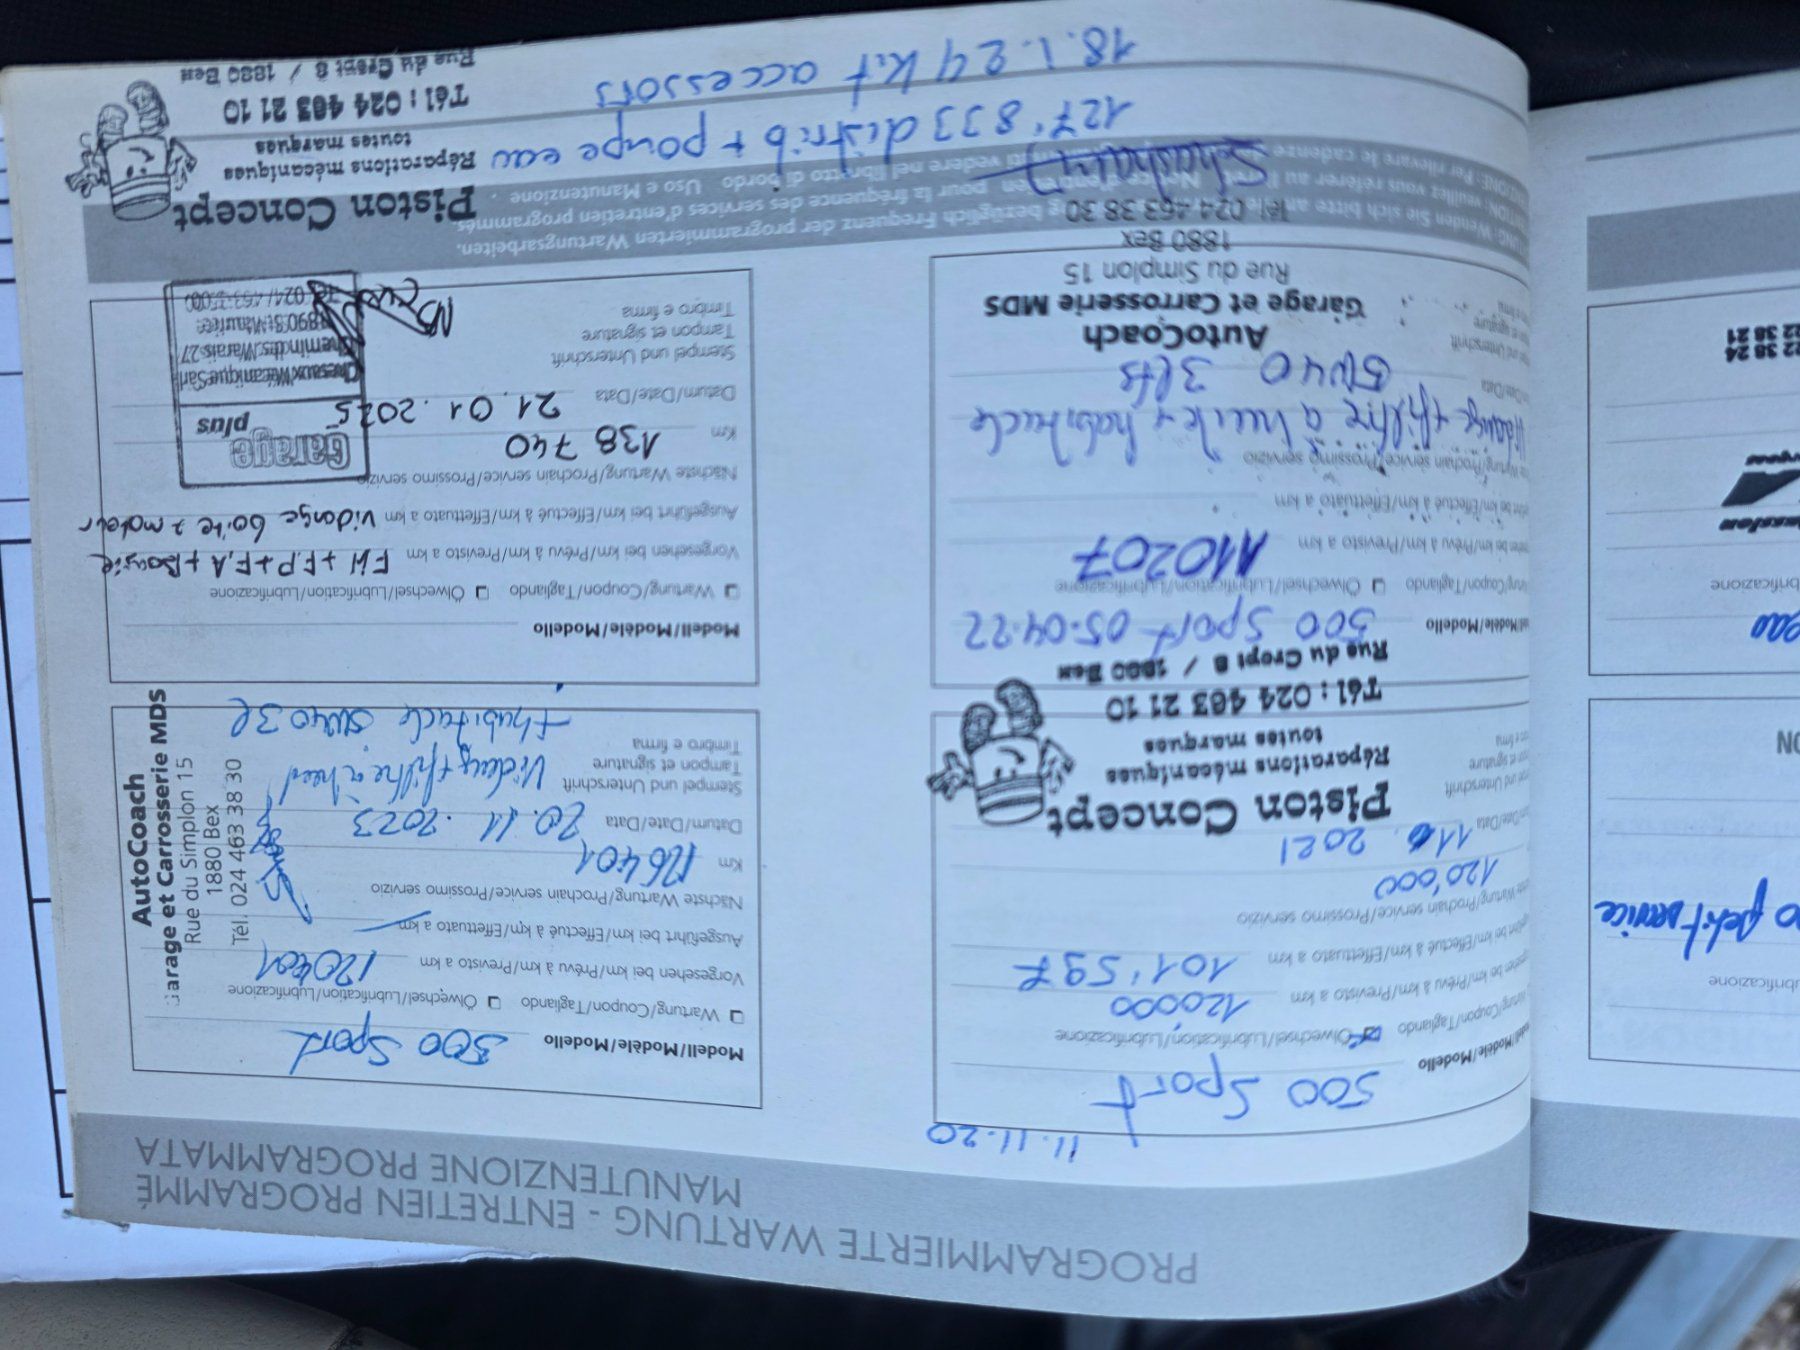 PROGRAMMIERTE WARTUNG - ENTRETIEN PROGRAMMÉ
MANUTENZIONE PROGRAMMATA
11.11.20
Modell/Modèle/Modello 500 Sport
Wartung/Coupon/Tagliando Ölwechsel/Lubrification/Lubrificazione
Vorgesehen bei km/Prévu à km/Previsto a km 120000
Ausgeführt bei km/Effectué à km/Effettuato a km 101'597
Nächste Wartung/Prochain service/Prossimo servizio
120'000
Datum/Date/Data 2021
Piston Concept
Réparations mécaniques
toutes marques
Tél : 024 463 21 10
Rue du Cropt 8 / 1880 Bex
Modell/Modèle/Modello 500 Sport 05.04.22
Wartung/Coupon/Tagliando Ölwechsel/Lubrification/Lubrificazione
Vorgesehen bei km/Prévu à km/Previsto a km 110207
Ausgeführt bei km/Effectué à km/Effettuato a km
Nächste Wartung/Prochain service/Prossimo servizio
Vidange + filtre à huile + habitacle
5W40 3lts
AutoCoach
Garage et Carrosserie MDS
Rue du Simplon 15
1880 Bex
Tél. 024 463 38 30
Modell/Modèle/Modello 500 Sport
Wartung/Coupon/Tagliando Ölwechsel/Lubrification/Lubrificazione
Vorgesehen bei km/Prévu à km/Previsto a km 120401
Ausgeführt bei km/Effectué à km/Effettuato a km
Nächste Wartung/Prochain service/Prossimo servizio
Km 126401
Datum/Date/Data 20.11.2023
Stempel und Unterschrift Vidange + filtre à
Tampon et signature
Timbro e firma
+ habitacle 5W40 3l
AutoCoach
Garage et Carrosserie MDS
Rue du Simplon 15
1880 Bex
Tél. 024 463 38 30
Modell/Modèle/Modello
Wartung/Coupon/Tagliando Ölwechsel/Lubrification/Lubrificazione
Vorgesehen bei km/Prévu à km/Previsto a km F.H + F.P + F.A + Bougie
Ausgeführt bei km/Effectué à km/Effettuato a km Vidange boite + moteur
Nächste Wartung/Prochain service/Prossimo servizio
Km 138 740
Datum/Date/Data 21.01.2025
Stempel und Unterschrift
Tampon et signature
Timbro e firma
Garage
plus
Mécanique Sàrl
Chemin des Marais 27
1890 St-Maurice
Wenden Sie sich bitte bezüglich Frequenz der programmierten Wartungsarbeiten.
veuillez vous référer au pour la fréquence des services d'entretien programmés.
Per rilevare le cadenze vedere nel libretto di bordo Uso e Manutenzione.
127'833 distrib + poupe eau
18.1.24 Kit accessoirs
Piston Concept
Réparations mécaniques
toutes marques
Tél : 024 463 21 10
Rue du Cropt 8 / 1880 Bex
petit service
eau
22 38 24
22 38 21